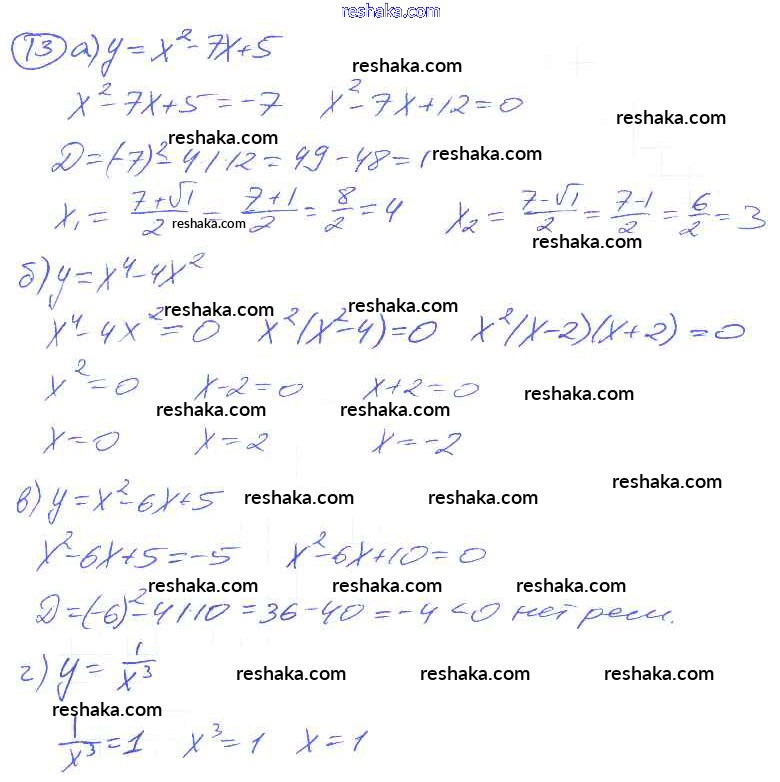 reshaka.com
13 а) y = x² - 7x + 5
reshaka.com
x² - 7x + 5 = -7 x² - 7x + 12 = 0
reshaka.com
reshaka.com
D = (-7)² - 4·1·12 = 49 - 48 = 1
reshaka.com
x₁ = (7+√1)/2 = (7+1)/2 = 8/2 = 4 x₂ = (7-√1)/2 = (7-1)/2 = 6/2 = 3
reshaka.com
reshaka.com
б) y = x⁴ - 4x²
reshaka.com reshaka.com
x⁴ - 4x² = 0 x²(x² - 4) = 0 x²(x-2)(x+2) = 0
x² = 0 x - 2 = 0 x + 2 = 0
reshaka.com
reshaka.com reshaka.com
x = 0 x = 2 x = -2
reshaka.com
в) y = x² - 6x + 5
reshaka.com reshaka.com
x² - 6x + 5 = -5 x² - 6x + 10 = 0
reshaka.com reshaka.com reshaka.com
D = (-6)² - 4·1·10 = 36 - 40 = -4 < 0 нет реш.
г) y = 1/x³
reshaka.com reshaka.com reshaka.com
reshaka.com
1/x³ = 1 x³ = 1 x = 1